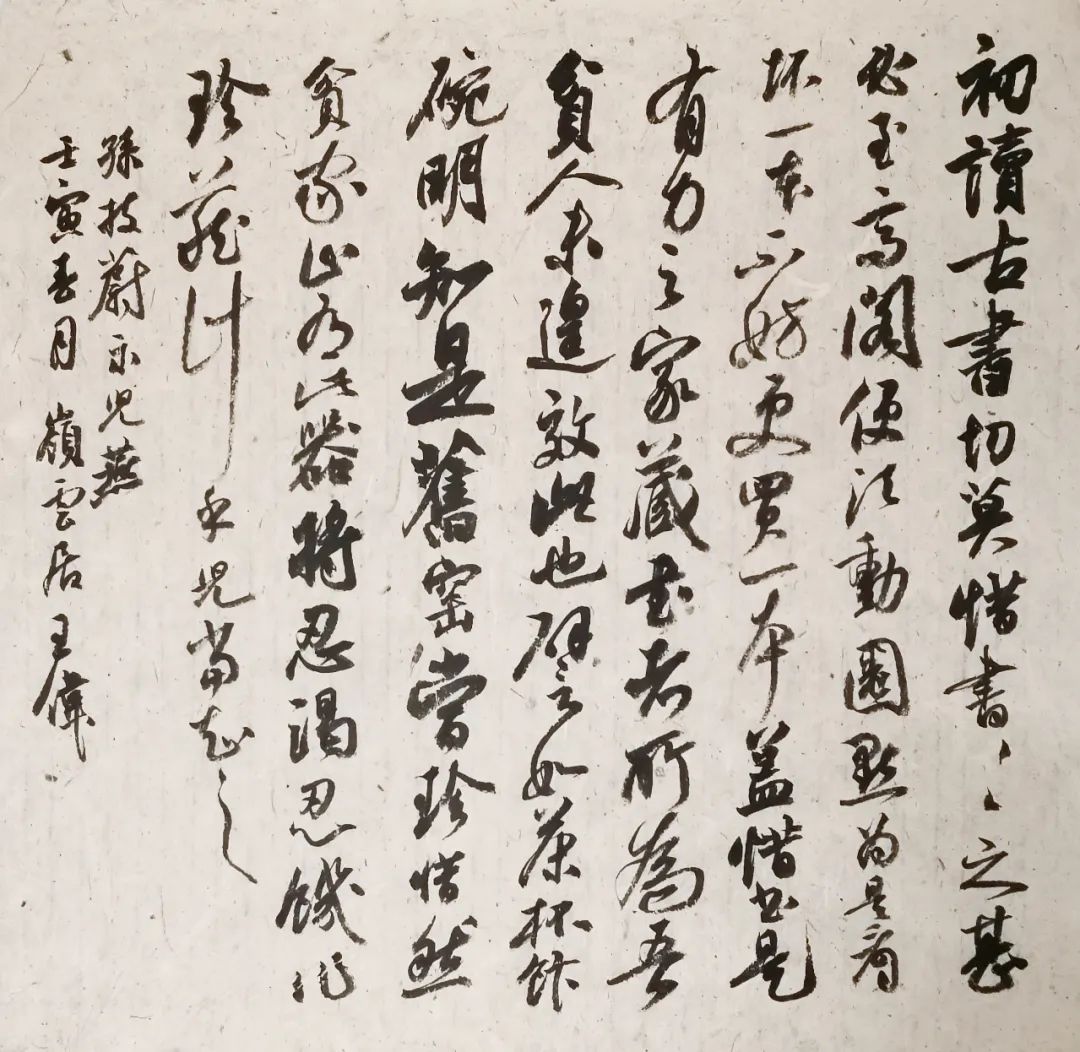 初讀古書切莫惜書〻〻之甚
必至高閣便須動圈點為是看
坏一本不妨更買一本蓋惜書是
有力之家藏書者所為吾
貧人未遑效此也譬如茶杯飯
碗明知是舊窑當珍惜然
貧家止有此器將忍渴忍饑作
珍藏計乎兒當知之
孫枝蔚示兒燕
壬寅春月嶺雲居王偉